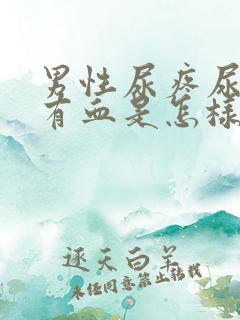 男性尿疼尿
有血是怎样
逐天白羊
未经同意禁止转载